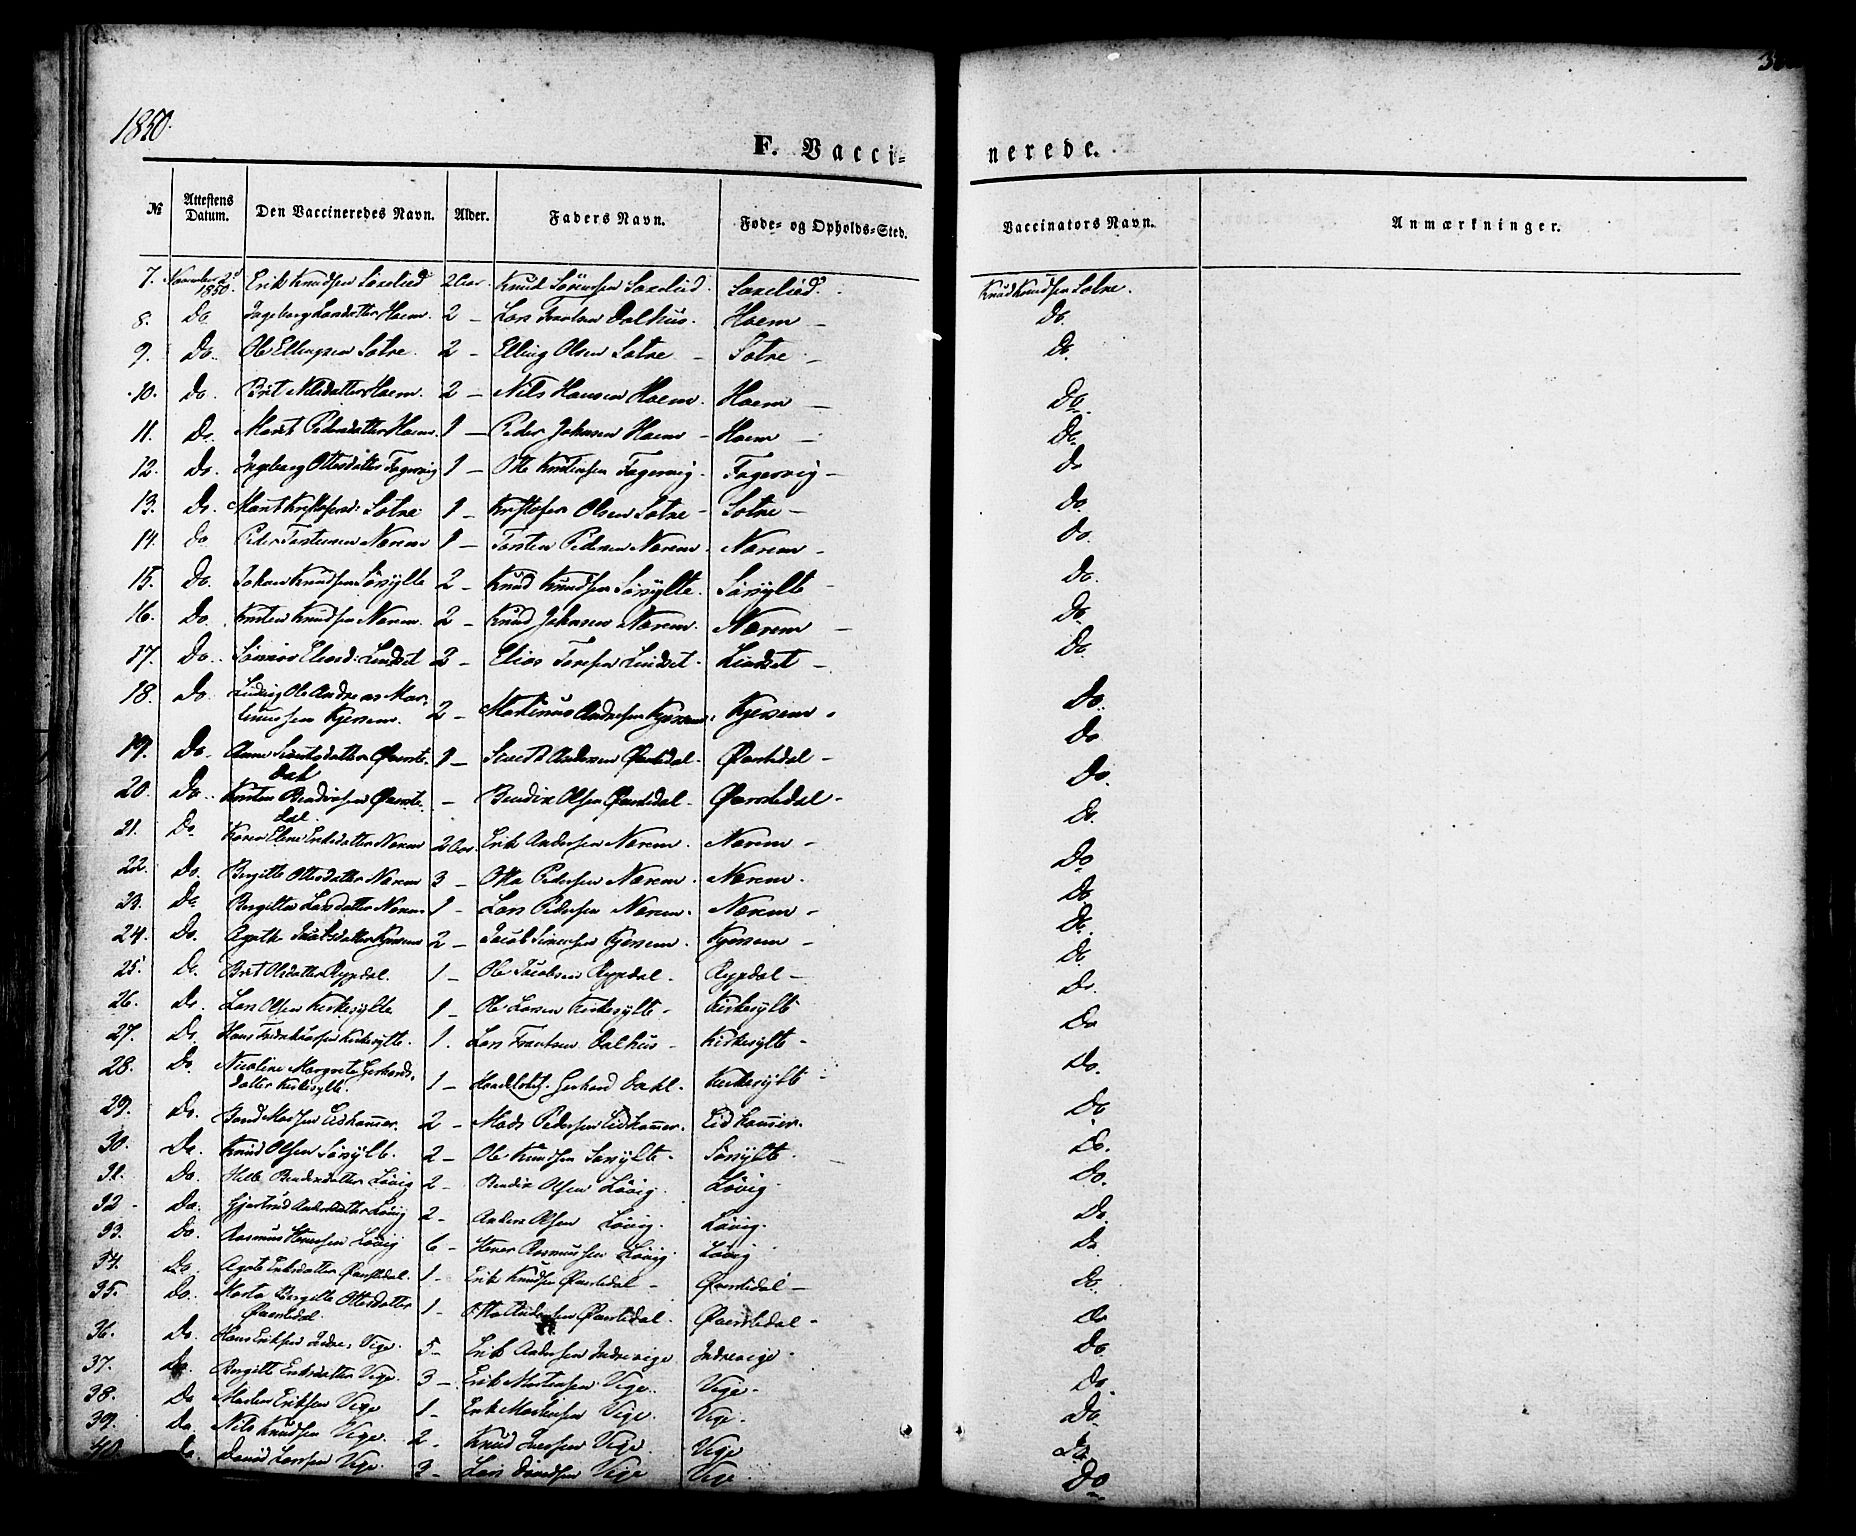 1850.
F. Vacci- nerede.
№ Attestens Datum. Den Vaccineredes Navn. Alder. Faders Navn. Føde- og Opholds-Sted. Vaccinators Navn. Anmærkninger.
7. November 1850. Erik Knudsen 2 Aar. Knud Knud Knudsen Solne.
8. Do Ingeborg Larsdatter Hoem. 2 - Lars Dalhus. Hoem - Do.
9. Do. Ole Ellingsen Solne. 2 - Elling Olsen Solne - Solne - Do.
10. Do. Brit Nilsdatter Hoem. 2 - Nils Hansen Hoem. Hoem - Do.
11. Do. Marit Pedersdatter Hoem. 1 - Peder Johnsen Hoem - Hoem - Do.
12. Do. Ingeborg Ottesdatter Fagervig 1 - Otte Fagervig. Fagervig - Do
13. Do. Marit Kristofersd: Solne 1 - Kristofer Olsen Solne - Solne - Do.
14. Do Peder Torstensen Norem 1 - Torsten Pedersen Norem. Norem - Do.
15. Do. Johan Knudsen Sørsylte 2 - Knud Knudsen Sørsylte. Sørsylte - Do.
16. Do. Knudsen Norem. 2 - Knud Johnsen Norem. Norem - Do.
17. Do. Eliasd: Lindset 2 - Elias Lindset. Lindset - Do.
18. Do. Ludvig Ole Andreas Mar-
tinussen Kjersem. 2 - Martinus Andersen Kjersem. Kjersem - Do.
19. Do. Anne Øverste-
dal 1 - Andersen Øverstedal. Øverstedal - Do
20. Do. Bendixsen Øverste-
dal. - Bendix Olsen Øverstedal - Øverstedal - Do.
21. Do. Karen Eline Eriksdatter Norem 2 Aar. Erik Andersen Norem. Norem - Do.
22. Do. Bergitte Ottesdatter Norem 3 - Otte Pedersen Norem. Norem. Do
23. Do. Larsdatter Norem 1 - Lars Pedersen Norem. Norem - Do
24. Do. Jacobsdatter Kjersem 2 - Jacob Kjersem. Kjersem - Do.
25. Do. Brit Olsdatter Rypdal. 1 - Ole Jacobsen Rypdal. Rypdal - Do.
26. Do. Lars Olsen Kirkesylte 1 - Ole Larsen Kirkesylte - Kirkesylte Do.
27. Do. Hans Kirkesylte. 1. Lars Frantsen Dalhus - Kirkesylte - Do
28. Do. Nicoline Margrete Gerhards-
datter Kirkesylte. 1 - Gerhard Dahl. Kirkesylte - Do.
29. Do. Madsen Eidhammer. 2 - Mads Pedersen Eidhammer. Eidhammer. Do
30. Do. Knud Olsen Sørsylte. 2 - Ole Knudsen Sørsylte. Sørsylte. Do.
31. Do. Bendixdatter Løvig 2 - Bendix Olsen Løvig. Løvig. Do.
32 - Do. Gjertrud Andersdatter Løvig 2 - Anders Olsen Løvig. Løvig. Do.
33. Do. Rasmus Løvig 6 - Rasmussen Løvig. Løvig Do
34. Do. Eriksdatter Øverstedal. 1 - Erik Knudsen Øverstedal - Øverstedal - Do.
35. Do. Marta Bergitte Ottesdatter
Øverstedal. 1 - Otte Andersen Øverstedal. Øverstedal - Do
36. Do. Hans Eriksen Indre Vige. 5 - Erik Andersen Indrevige Indrevige. Do.
37. Do. Bergitte Eriksdatter Vige. 3 - Erik Mortensen Vige. Vige. Do.
38. Do Morten Eriksen Vige 1 - Erik Mortensen Vige. Vige. Do.
39. Do. Nils Knudsen Vige. 2 - Knud Vige. Vige Do.
40. Do. David Larssen Vige. 3 - Lars Davidsen Vige Vige Do